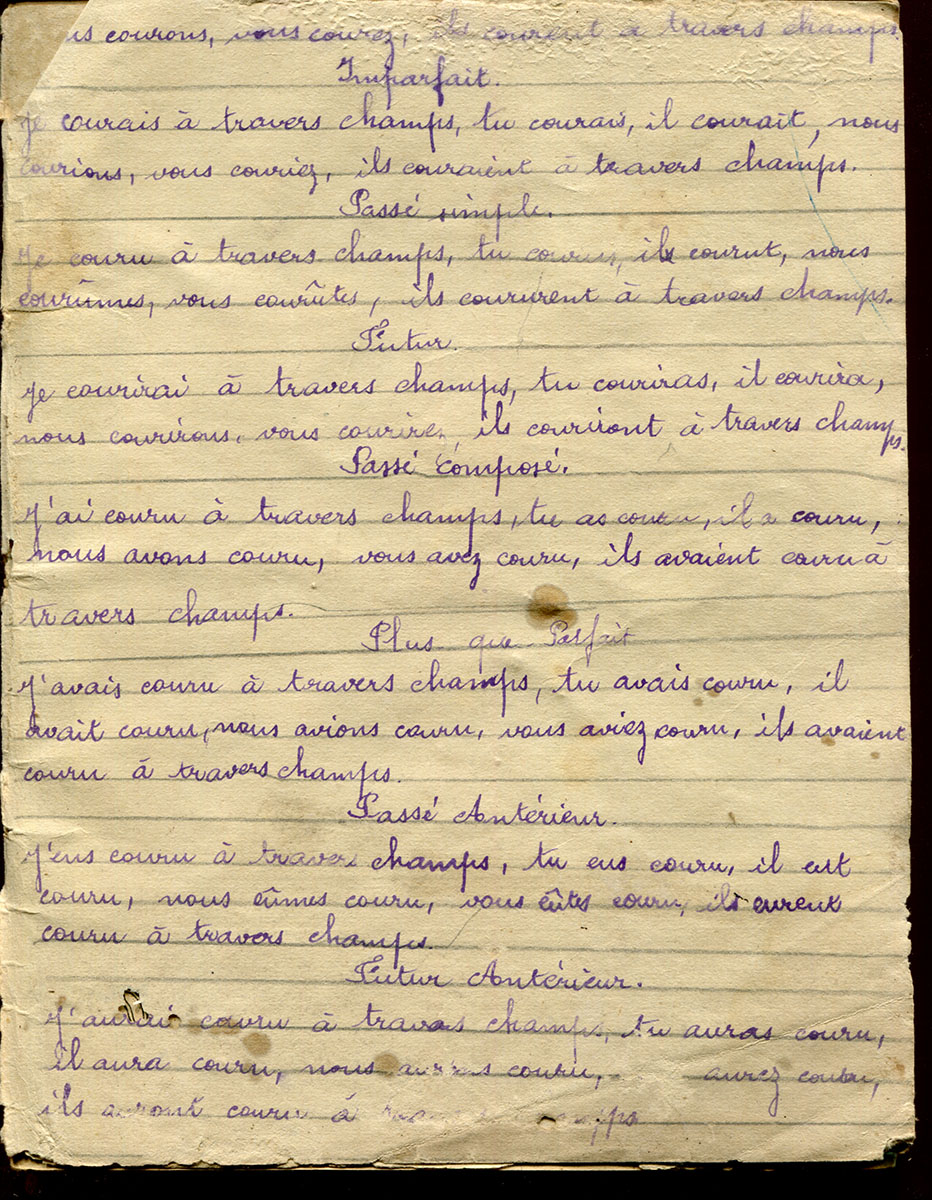 us courons, vous courez, ils courent à travers champs
Imparfait.
Je courais à travers champs, tu courais, il courait, nous
courions, vous couriez, ils couraient à travers champs.
Passé simple.
Je couru à travers champs, tu courus, ils courut, nous
courûmes, vous courûtes, ils coururent à travers champs.
Futur.
Je courirai à travers champs, tu couriras, il courira,
nous courirons, vous courirez, ils couriront à travers champs.
Passé composé.
J'ai couru à travers champs, tu as couru, il a couru,
nous avons couru, vous avez couru, ils avaient couru à
travers champs.
Plus que Parfait
J'avais couru à travers champs, tu avais couru, il
avait couru, nous avions couru, vous aviez couru, ils avaient
couru à travers champs.
Passé Antérieur.
J'eus couru à travers champs, tu eus couru, il eut
couru, nous eûmes couru, vous eûtes couru, ils eurent
couru à travers champs.
Futur Antérieur.
J'aurai couru à travers champs, tu auras couru,
il aura couru, nous couru, aurez couru,
ils auront couru à